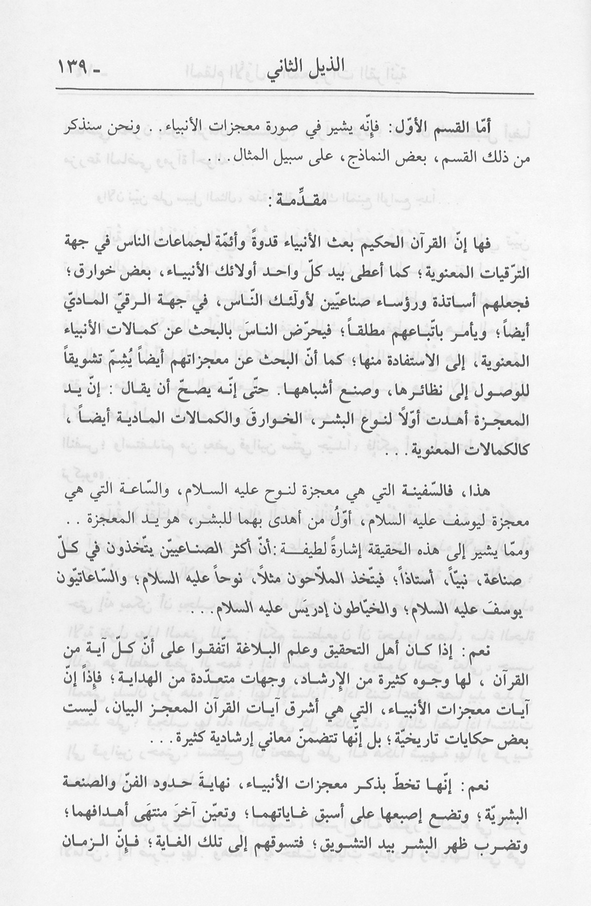 الذيل الثاني
ـ ١٣٩
أمّا القسم الأوّل: فإنّه يشير في صورة معجزات الأنبياء.. ونحن سنذكر
من ذلك القسم، بعض النماذج، على سبيل المثال...
مقدِّمـة:
فها إنّ القرآن الحكيم بعث الأنبياء قدوةً وأئمّة لجماعات الناس في جهة
الترّقيات المعنوية؛ كما أعطى بيد كلّ واحـد أولائك الأنبيـاء، بعض خوارق؛
فجعلهم أسـاتذة ورؤساء صناعيّين لأولٓئك النّـاس، في جهـة الرقيّ الماديّ
أيضاً؛ ويأمـر باتّبـاعهم مطلقـاً؛ فيحرّض الناسَ بالبحث عن كمالات الأنبياء
المعنوية، إلى الاستفادة منها؛ كما أنّ البحث عن معجزاتهم أيضاً يُشِمّ تشويقاً
للوصول إلى نظائرها، وصنع أشباههـا. حتّى إنّـه يصـحّ أن يقال : إنّ يـد
المعجـزة أهدت أوّلاً لنوع البشـر، الخـوارقَ والكمالات الماديـة أيضـاً ،
كالكمالات المعنوية...
هذا، فالسّفينـة التي هي معجزة لنـوح عليه السـلام، والسّاعـة التي هي
معجزة ليوسف عليه السلام، أوّلُ من أهدى بهما للبشـر، هو يـد المعجزة ..
وممّا يشير إلى هذه الحقيقة إشارةً لطيفـة:أنّ أكثر الصناعيّين يتّخذون في كـلّ
صناعة، نبيّاً، أستاذاً؛ فيتّخذ الملّاحون مثلاً، نوحاً عليه السلام؛ والسّاعاتيّون
يوسفَ عليه السلام؛ والخيّاطون إدريَس عليه السلام...
نعم: إذا كـان أهل التحقيق وعلم البلاغة اتفقـوا على أنّ كـلّ آيـة من
القرآن ، لها وجـوه كثيرة من الإرشـاد، وجهات متعـدّدة من الهدايـة؛ فإذاً إنّ
آيـات معجزات الأنبيـاء، التي هي أشرق آيـات القرآن المعجـز البيان، ليست
بعض حكايات تاريخيّة؛ بل إنّها تتضمنّ معاني إرشادية كثيرة...
نعم: إنّهـا تخطّ بذكـر معجزات الأنبيـاء، نهايـةَ حدود الفنّ والصنعـة
البشريّة؛ وتضـع إصبعها على أسبق غاياتهمـا؛ وتعيّن آخـرَ منتهَى أهدافهمـا؛
وتضـرب ظهر البشـر بيد التشـويق؛ فتسوقهم إلى تلك الغاية؛ فـإنّ الـزمان